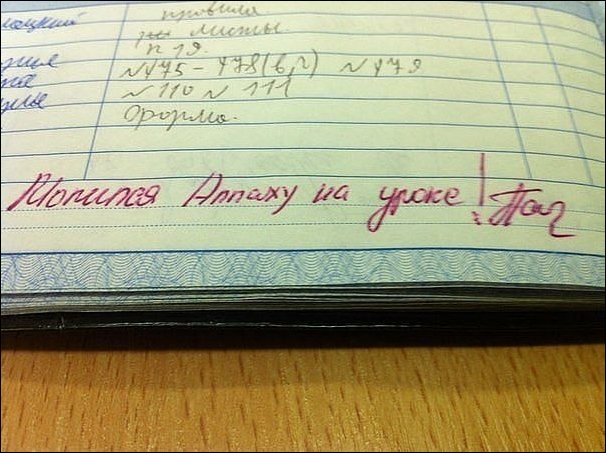 правила
листы.
п 19.
№475-478(в,г) №479
№110 №111
Форма.
Молился Аллаху на уроке!